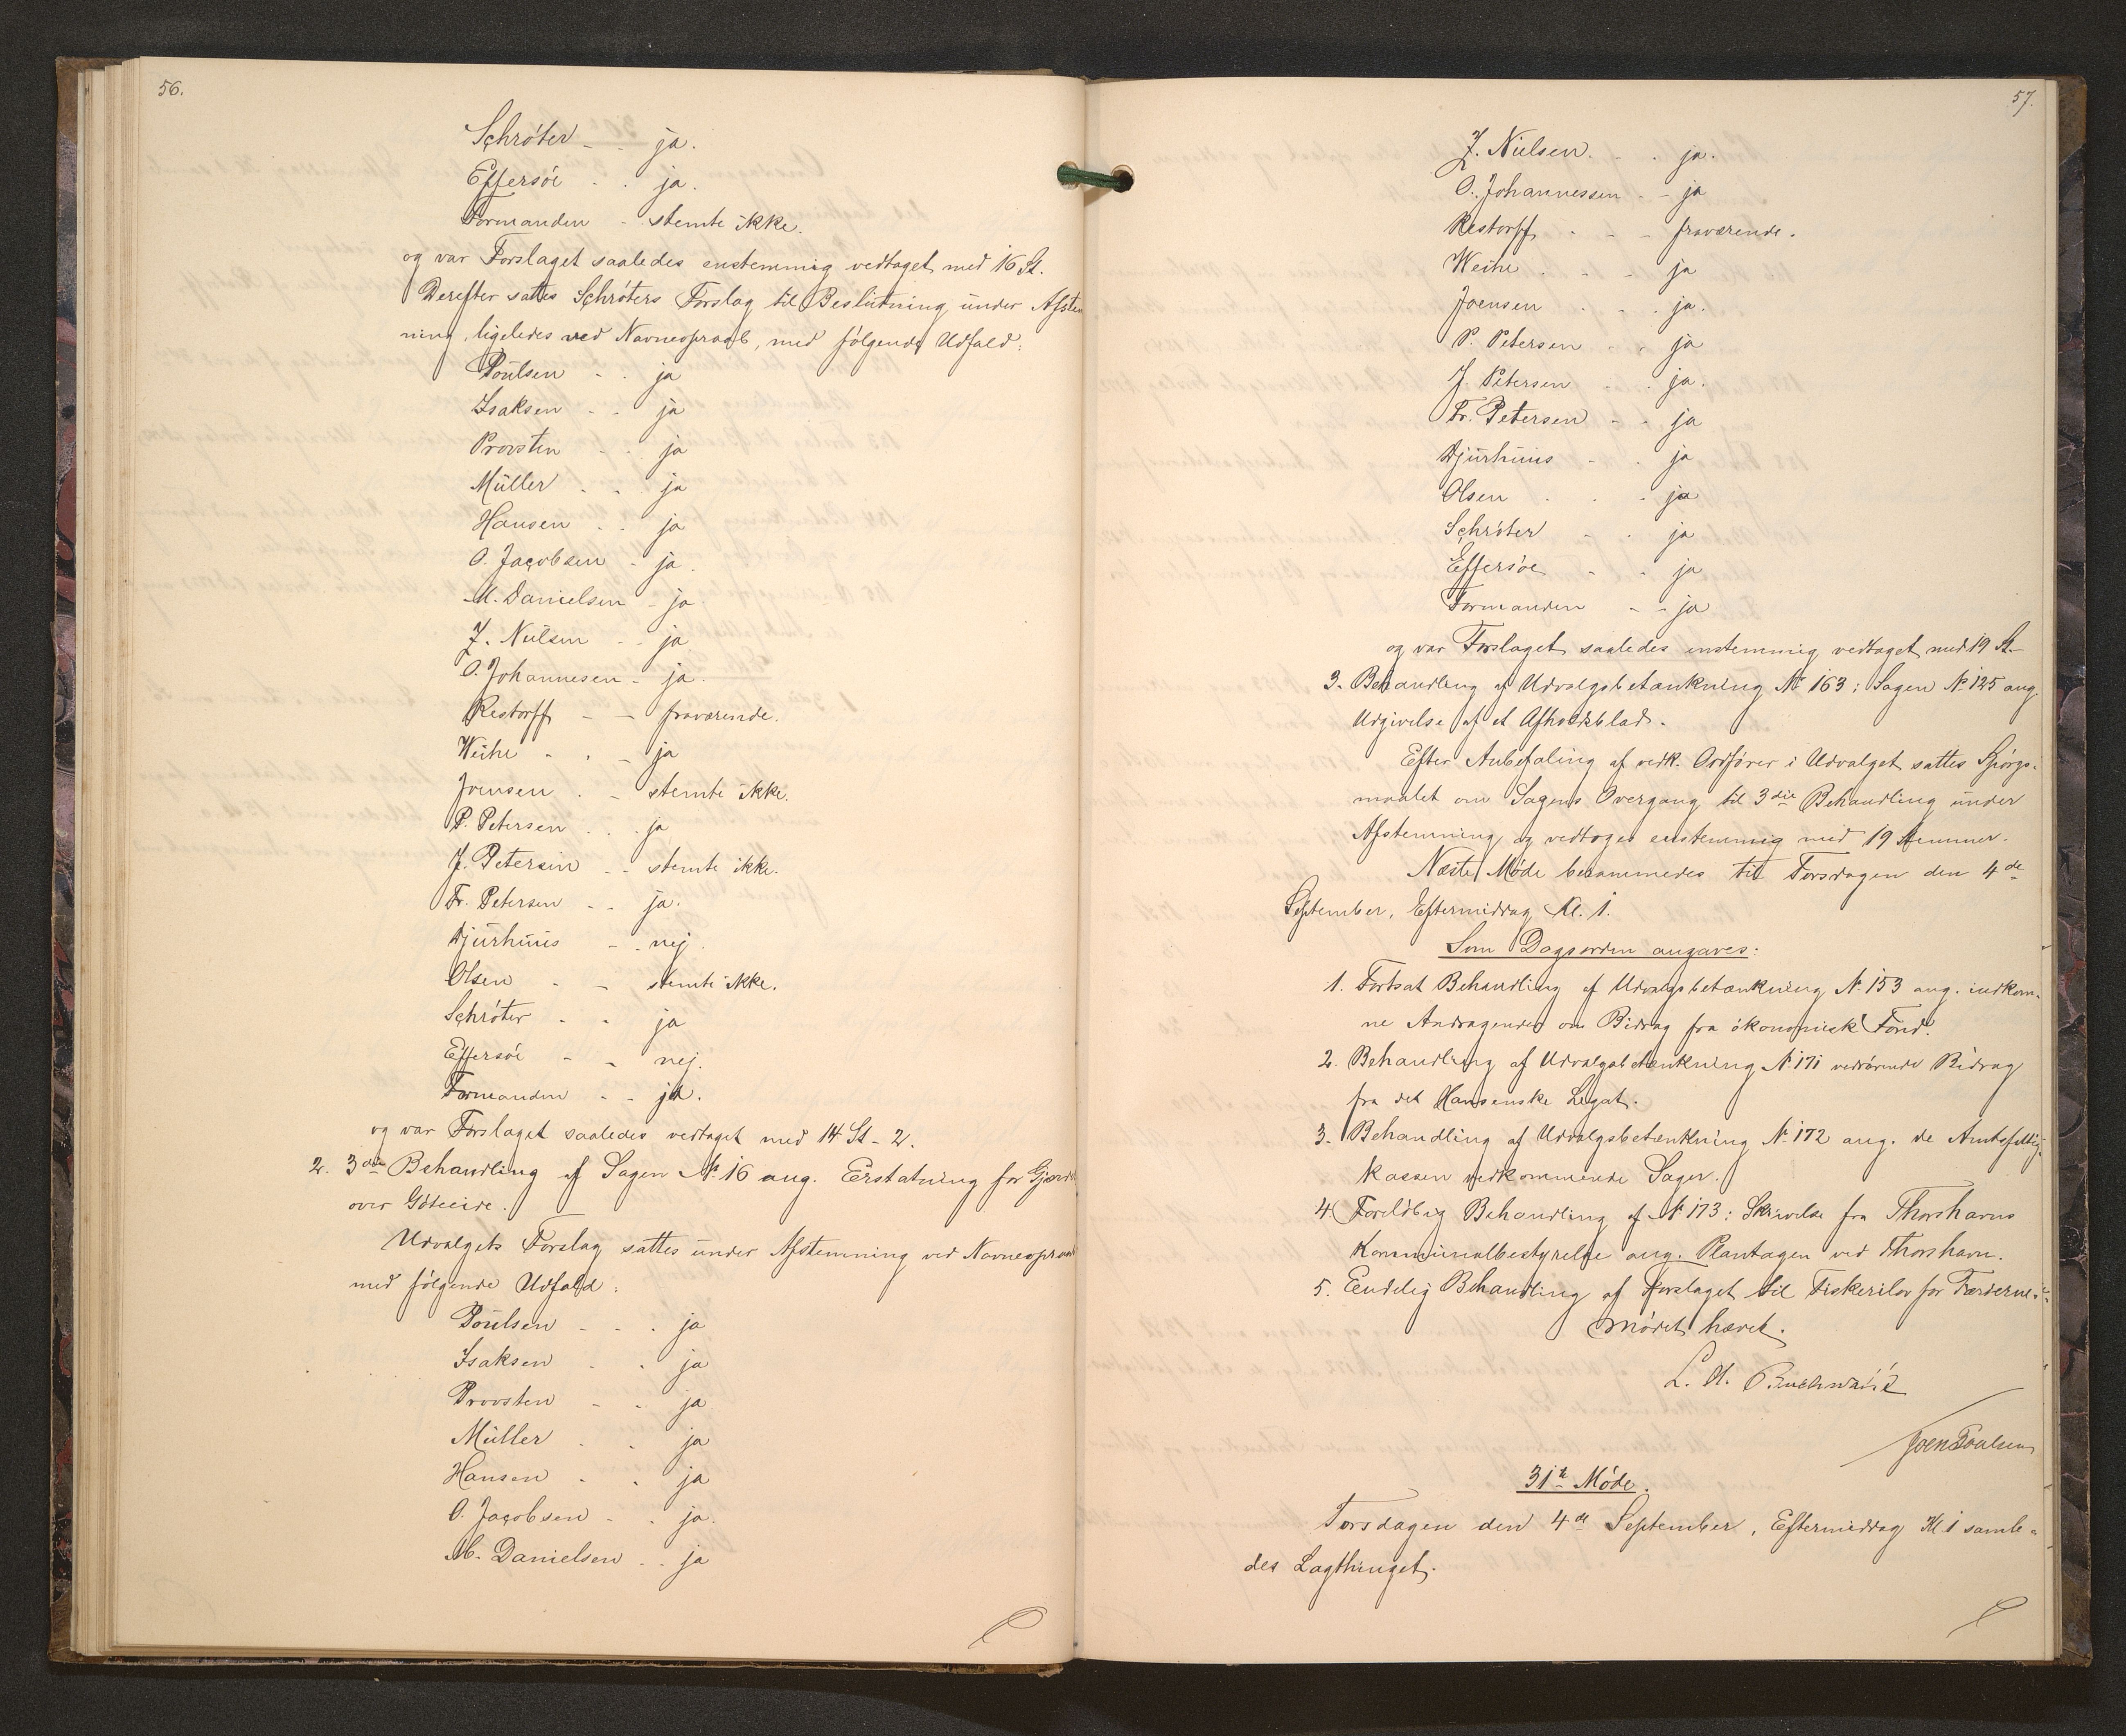 56.
Schröter - - ja.
Effersöe - - ja.
Formanden - stemte ikke.
og var Forslaget saaledes enstemmig vedtaget med 16 St.
Derefter sattes Schröters Forslag til Beslutning under Afstem
ning, ligeledes ved Navneopraab, med følgende Udfald:
Poulsen - - ja
Isaksen - - ja
Provsten - - ja
Müller - - ja
Hansen - - ja
O. Jacobsen - ja.
M. Danielsen - ja.
Z. Nielsen - - ja
O. Johannesen - ja.
Restorff - - fraværende.
Weihe - - - ja
Joensen - - stemte ikke.
P. Petersen - - - ja
J. Petersen - - stemte ikke.
Fr. Petersen - - ja.
Djurhuus - - nej.
Olsen - - stemte ikke.
Schröter - - ja
Effersöe - - nej.
Formanden - - ja.
og var Forslaget saaledes vedtaget med 14 St - 2.
2. 3die Behandling af Sagen No 16 ang. Erstatning for Gjerde
over Göteeide.
Udvalgets Forslag sattes under Afstemning ved Navneopraab
med følgende Udfald:
Poulsen - - - ja
Isaksen - - ja
Provsten - - ja
Müller - - ja
Hansen - - ja
O. Jacobsen - - ja.
M. Danielsen - - ja
57.
Z. Nielsen. - - ja.
O. Johannessen - - ja
Restorff - - - fraværende.
Weihe - - - ja
Joensen - - - ja.
P. Petersen - - ja
J. Petersen - - ja.
Fr. Petersen - - ja
Djurhuus - - ja
Olsen - - - ja
Schröter - - ja
Effersöe - - ja
Formanden - - ja
og var Forslaget saaledes enstemmig vedtaget med 19 St.
3. Behandling af Udvalgsbetænkning No 163: Sagen No 125 ang.
Udgivelse af et Afholdsblad.
Efter Anbefaling af vedk. Ordfører i Udvalget sattes Spörgs-
maalet om Sagens Overgang til 3die Behandling under
Afstemning og vedtoges enstemmig med 19 Stemmer.
Næste Møde berammedes til Torsdagen den 4de
September, Eftermiddag Kl. 1.
Som Dagsorden angaves:
1. Fortsat Behandling af Udvalgsbetænkning No 153 ang. indkom-
ne Andragender om Bidrag fra økonomisk Fond.
2. Behandling af Udvalgsbetænkning No 171 vedrørende Bidrag
fra det Hansenske Legat.
3. Behandling af Udvalgsbetænkning No 172 ang. de Amtsfattig-
kassen vedkommende Sager.
4 Foreløbig Behandling af No 173: Skrivelse fra Thorshavns
Kommunalbestyrelse ang. Plantagen ved Thorshavn.
5. Endelig Behandling af Forslaget til Fiskerilov for Færøerne.
Mødet hævet.
L. A. Buchwaldt
Joen Poulsen
31te Møde.
Torsdagen den 4de September, Eftermiddag Kl 1 samle-
des Lagthinget.